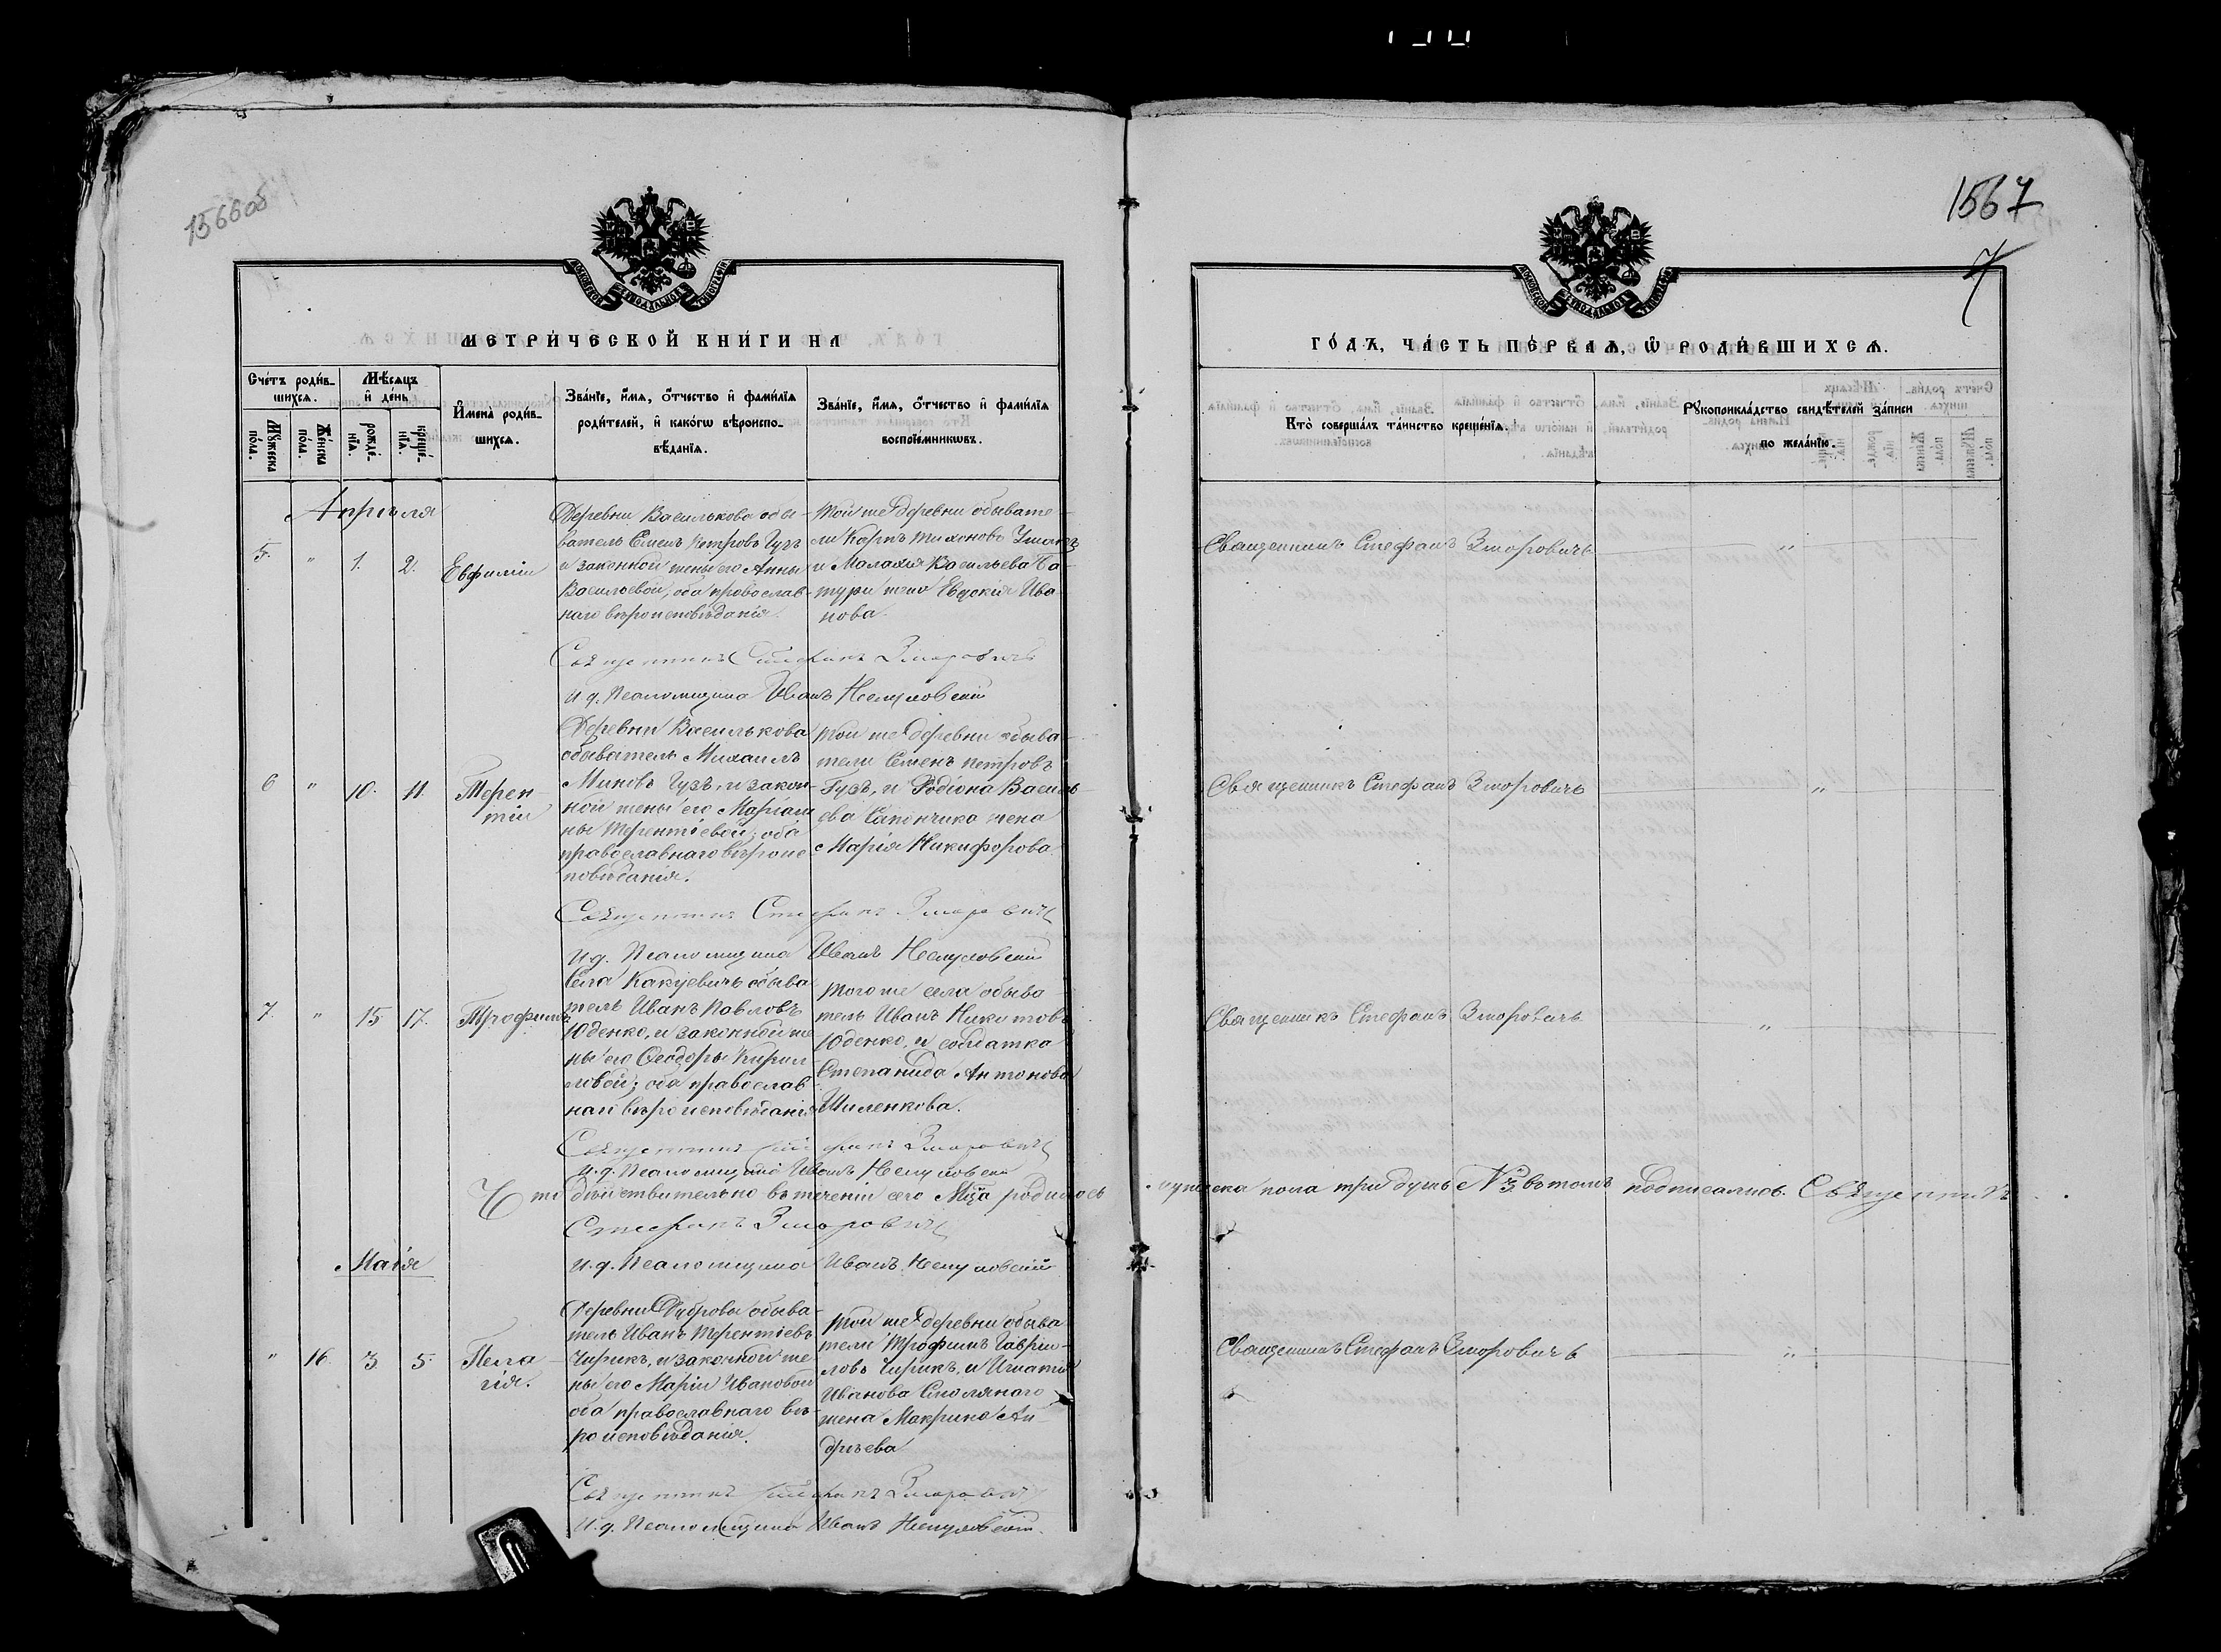 1566об
1567
7
МЕТРИ́ЧЕСКОЙ КНИ́ГИ НА
ГО́ДЪ, ЧА́СТЬ ПЕ́РВАѦ, Ѡ҆ РОДИ́ВШИХСѦ.
Сче́тъ роди́в-
шихсѧ.
Мꙋ́жеска по́ла.
Же́нска по́ла.
Мѣ́сѧцъ
и҆ де́нь
рожде́-нїѧ.
креще́-нїѧ.
И҆мена̀ роди́в-
шихсѧ.
Зва́нїе, и҆́мѧ, ѻ҆́тчество и҆ фами́лїѧ
роди́телей, и҆ како́гѡ вѣроиспо-
вѣ́данїѧ.
Зва́нїе, и҆́мѧ, ѻ҆́тчество и҆ фами́лїѧ
воспрїе́мникѡвъ.
Кто̀ соверша́лъ та́инство креще́нїѧ.
Рꙋкоприкла́дство свидѣ́телей за́писи
по жела́нїю.
Апрѣля
5. " 1. 2. Евфимій
Деревни Василькова обы-
ватель Семенъ Петровъ Гузъ
и законной жены его Анны
Васильевой, оба православ-
наго вѣроисповѣданія.
Той же деревни обывате-
ли Карпъ Тихоновъ
и Малахія Васильева
жена Евдокія Ива-
нова.
Священникъ Стефанъ Зморовичъ "
Священникъ Стефанъ Зморовичъ
И. д. Псаломщика Иванъ
6 " 10. 11. Терен-
тій
Деревни Василькова
обыватель Михаилъ
Миновъ Гузъ, и закон-
ной жены его
ны Терентіевой; оба
православнаго вѣроис-
повѣданія.
Той же деревни обыва-
тели Семенъ Петровъ
Гузъ, и Родіона Василь-
ева жена
Марія Никифорова
Священникъ Стефанъ Зморовичъ "
Священникъ Стефанъ Зморовичъ
И. д. Псаломщика Иванъ
7. " 15 17. Трофимъ
Села Какуевичъ обыва-
тель Иванъ Павловъ
Юденко, и законной же-
ны его Ѳеодоры Кирил-
ловой; оба православ-
наго вѣроисповѣданія
Того же села обыва-
тель Иванъ Никитовъ
Юденко, и солдатка
Степанида Антонова
Шиленкова.
Священникъ Стефанъ Зморовичъ "
Священникъ Стефанъ Зморовичъ
И. д. Псаломщика Иванъ
Что дѣйствительно въ теченіи сего Мца родилось мужеска пола три душъ №3 въ томъ подписались. Священникъ
Стефанъ Зморовичъ
И. д. Псаломщика Иванъ
Маія
" 16. 3 5. Пела-
гія.
Деревни Дубровы обыва-
тель Иванъ Терентіевъ
Чирикъ, и законной же-
ны его Маріи Ивановой
оба православнаго вѣ-
роисповѣданія.
Той же деревни обыва-
тели Трофимъ Гаврии-
ловъ Чирикъ, и Игнатія
Иванова Смоляного
жена Макрина Ан-
дреева
Священникъ Стефанъ Зморовичъ "
Священникъ Стефанъ Зморовичъ
И. д. Псаломщика Иванъ